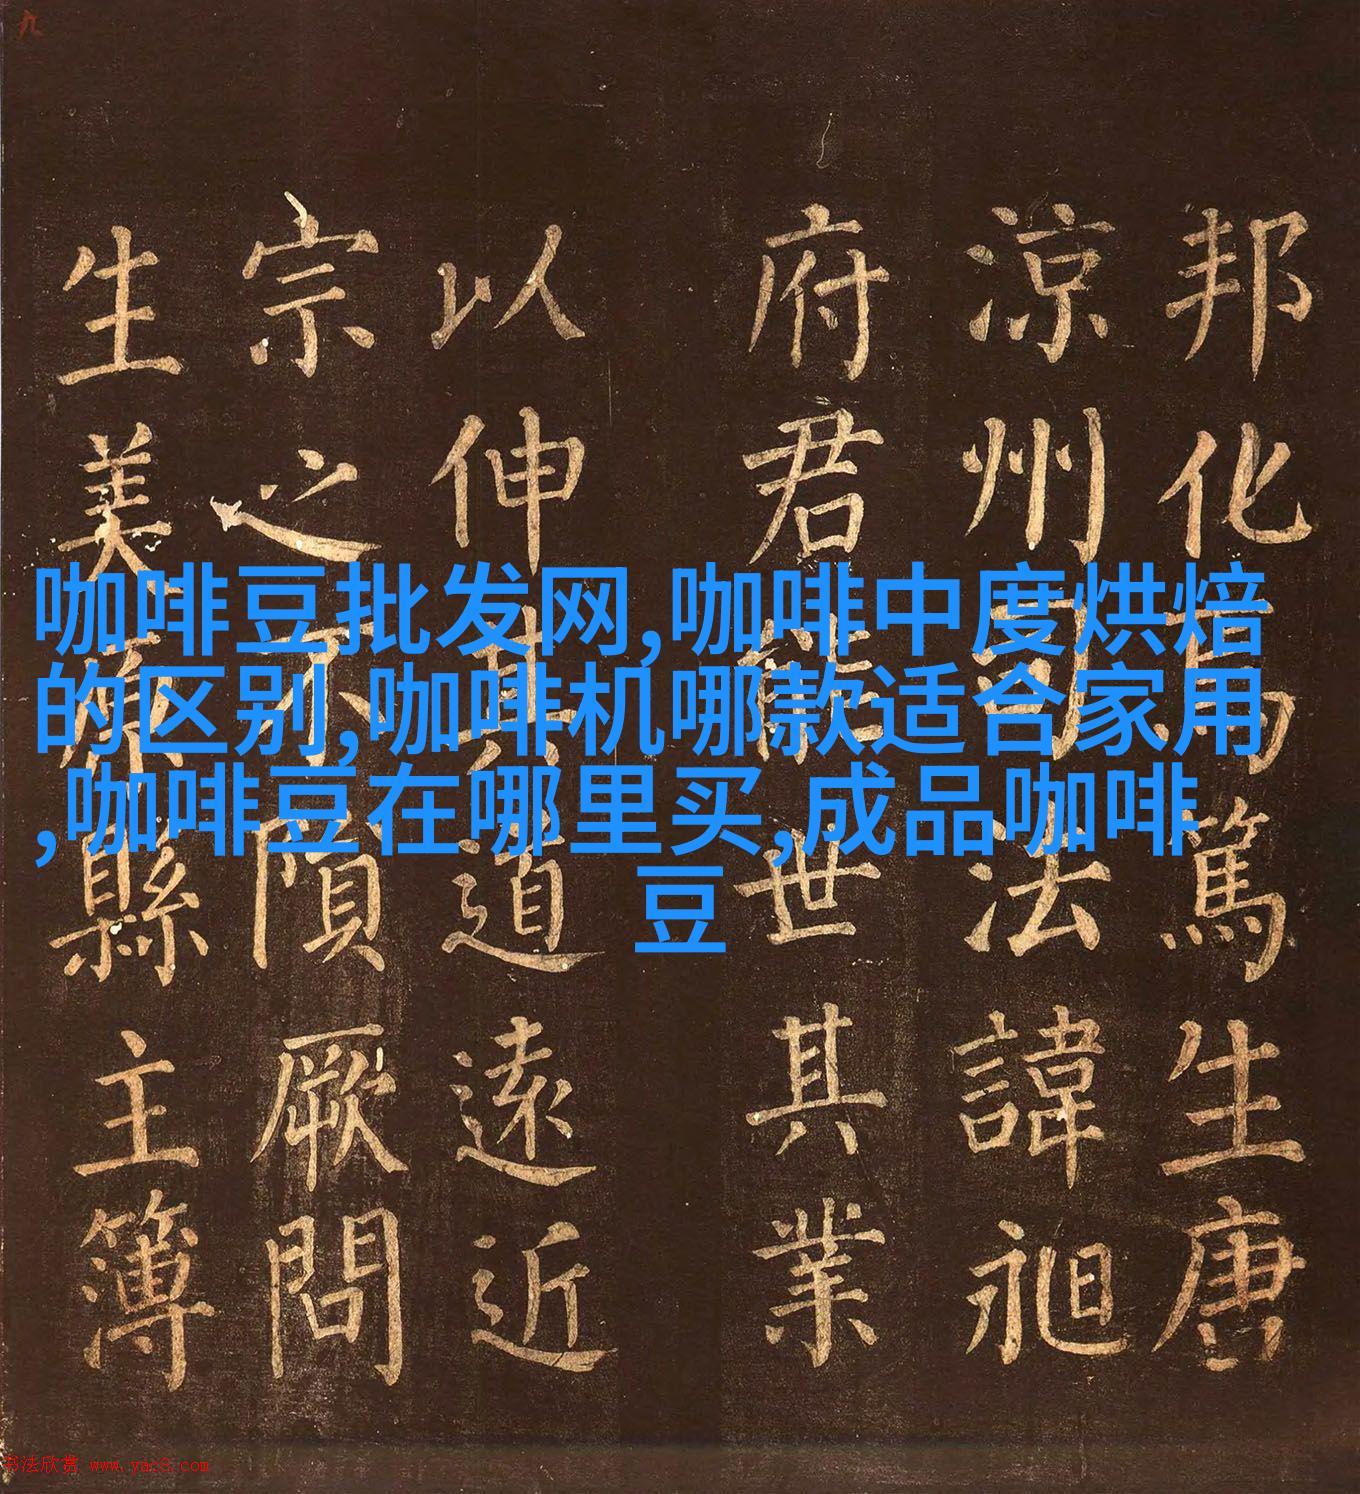 九
邦化篤生唐
涼州司法諱昶
府君能世其業
以伸其道遠近
宗之不隕厥問
生美原縣主簿
咖啡豆批发网,咖啡中度烘焙
的区别,咖啡机哪款适合家用
,咖啡豆在哪里买,成品咖啡
豆
书法欣赏 www.yac8.com